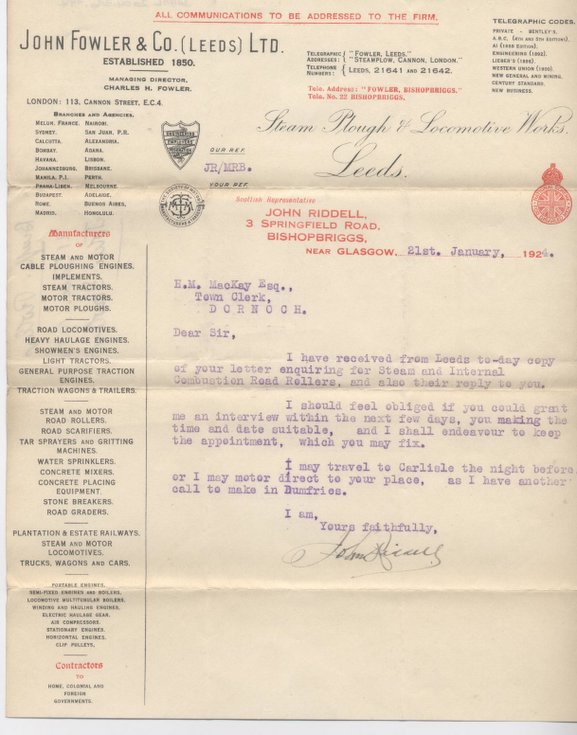 ALL COMMUNICATIONS TO BE ADDRESSED TO THE FIRM.
JOHN FOWLER & CO. (LEEDS) LTD.
ESTABLISHED 1850.
MANAGING DIRECTOR,
CHARLES H. FOWLER.
LONDON: 113, CANNON STREET, E.C.4.
BRANCHES AND AGENCIES.
MELUN, FRANCE. NAIROBI.
SYDNEY. SAN JUAN, P.R.
CALCUTTA. ALEXANDRIA.
BOMBAY. ADANA.
HAVANA. LISBON.
JOHANNESBURG. BRISBANE.
MANILA, P.I. PERTH.
PRAHA-LIBEN. MELBOURNE.
BUDAPEST. ADELAIDE.
ROME. BUENOS AIRES.
MADRID. HONOLULU.
TELEGRAPHIC ADDRESSES: "FOWLER, LEEDS."
"STEAMPLOW, CANNON, LONDON."
TELEPHONE NUMBERS: LEEDS, 21641 AND 21642.
Tele. Address: "FOWLER, BISHOPBRIGGS."
Tele. No. 22 BISHOPBRIGGS.
TELEGRAPHIC CODES.
PRIVATE - BENTLEY'S.
A.B.C. (4TH AND 5TH EDITIONS).
AI (1888 EDITION).
ENGINEERING (1892).
LIEBER'S (1896).
WESTERN UNION (1900).
NEW GENERAL AND MINING.
CENTURY STANDARD.
NEW BUSINESS.
Steam Plough & Locomotive Works.
Leeds.
OUR REF.
JR/MRB.
YOUR REF.
Scottish Representative
JOHN RIDDELL,
3 SPRINGFIELD ROAD,
BISHOPBRIGGS,
NEAR GLASGOW, 21st. January, 1924.
Manufacturers
OF
STEAM AND MOTOR
CABLE PLOUGHING ENGINES.
IMPLEMENTS.
STEAM TRACTORS.
MOTOR TRACTORS.
MOTOR PLOUGHS.
ROAD LOCOMOTIVES.
HEAVY HAULAGE ENGINES.
SHOWMEN'S ENGINES.
LIGHT TRACTORS.
GENERAL PURPOSE TRACTION
ENGINES.
TRACTION WAGONS & TRAILERS.
STEAM AND MOTOR
ROAD ROLLERS.
ROAD SCARIFIERS.
TAR SPRAYERS AND GRITTING
MACHINES.
WATER SPRINKLERS.
CONCRETE MIXERS.
CONCRETE PLACING
EQUIPMENT.
STONE BREAKERS.
ROAD GRADERS.
PLANTATION & ESTATE RAILWAYS.
STEAM AND MOTOR
LOCOMOTIVES.
TRUCKS, WAGONS AND CARS.
PORTABLE ENGINES.
SEMI-FIXED ENGINES AND BOILERS.
LOCOMOTIVE MULTITUBULAR BOILERS.
WINDING AND HAULING ENGINES.
ELECTRIC HAULAGE GEAR.
AIR COMPRESSORS.
STATIONARY ENGINES.
HORIZONTAL ENGINES.
CLIP PULLEYS.
Contractors
TO
HOME, COLONIAL AND
FOREIGN
GOVERNMENTS.
H.M. MacKay Esq.,
Town Clerk,
DORNOCH.
Dear Sir,
I have received from Leeds to-day copy
of your letter enquiring for Steam and Internal
Combustion Road Rollers, and also their reply to you.
I should feel obliged if you could grant
me an interview within the next few days, you making the
time and date suitable, and I shall endeavour to keep
the appointment, which you may fix.
I may travel to Carlisle the night before
or I may motor direct to your place, as I have another
call to make in Dumfries.
I am,
Yours faithfully,
John Riddell